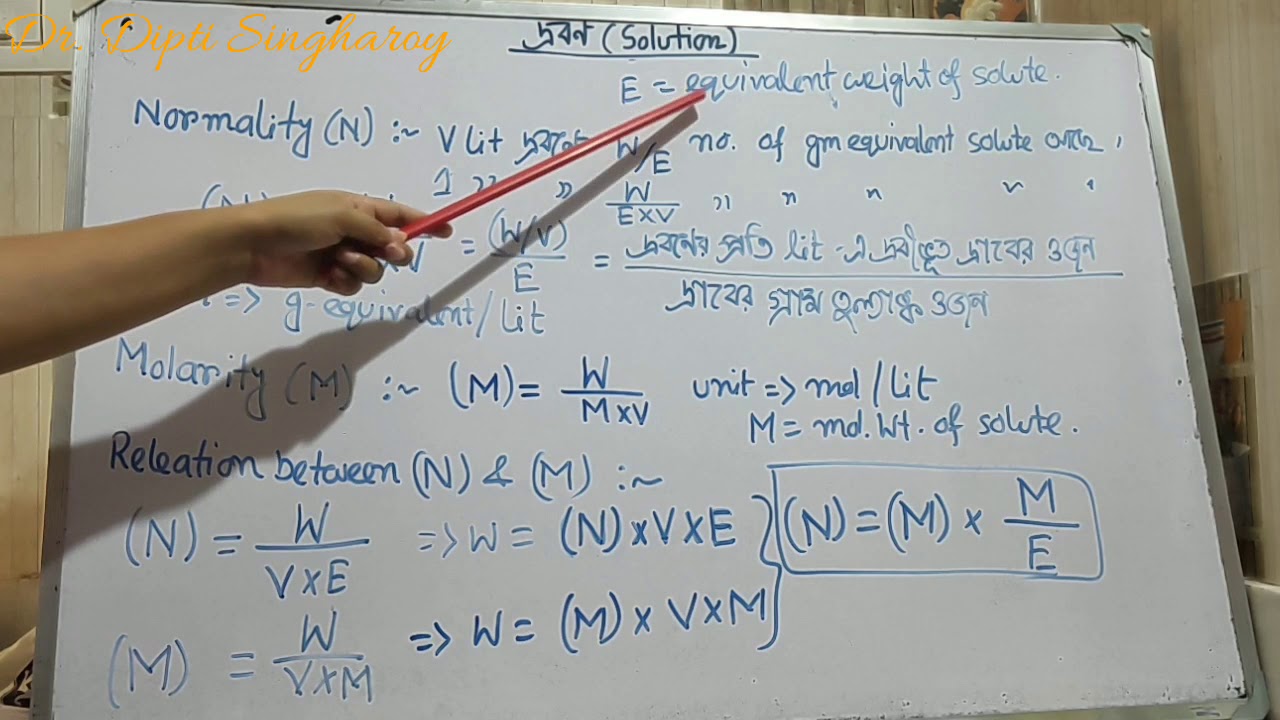 Dr. Dipti Singharoy
দ্রবণ (Solution)
E = equivalent weight of solute.
Normality (N) :~ V lit W/E no. of gm equivalent solute আছে,
1 " " W/E×V " " " " "
= (W/V)/E = দ্রবণের প্রতি lit-এ দ্রবীভূত দ্রাবের ওজন / দ্রাবের গ্রাম তুল্যাঙ্ক ওজন
=> g-equivalent/Lit
Molarity (M) :~ (M) = W/M×V unit => mol/Lit
M = mol. Wt. of solute.
Releation between (N) & (M) :~
(N) = W/V×E => W = (N)×V×E
(N) = (M) × M/E
(M) = W/V×M => W = (M)× V×M